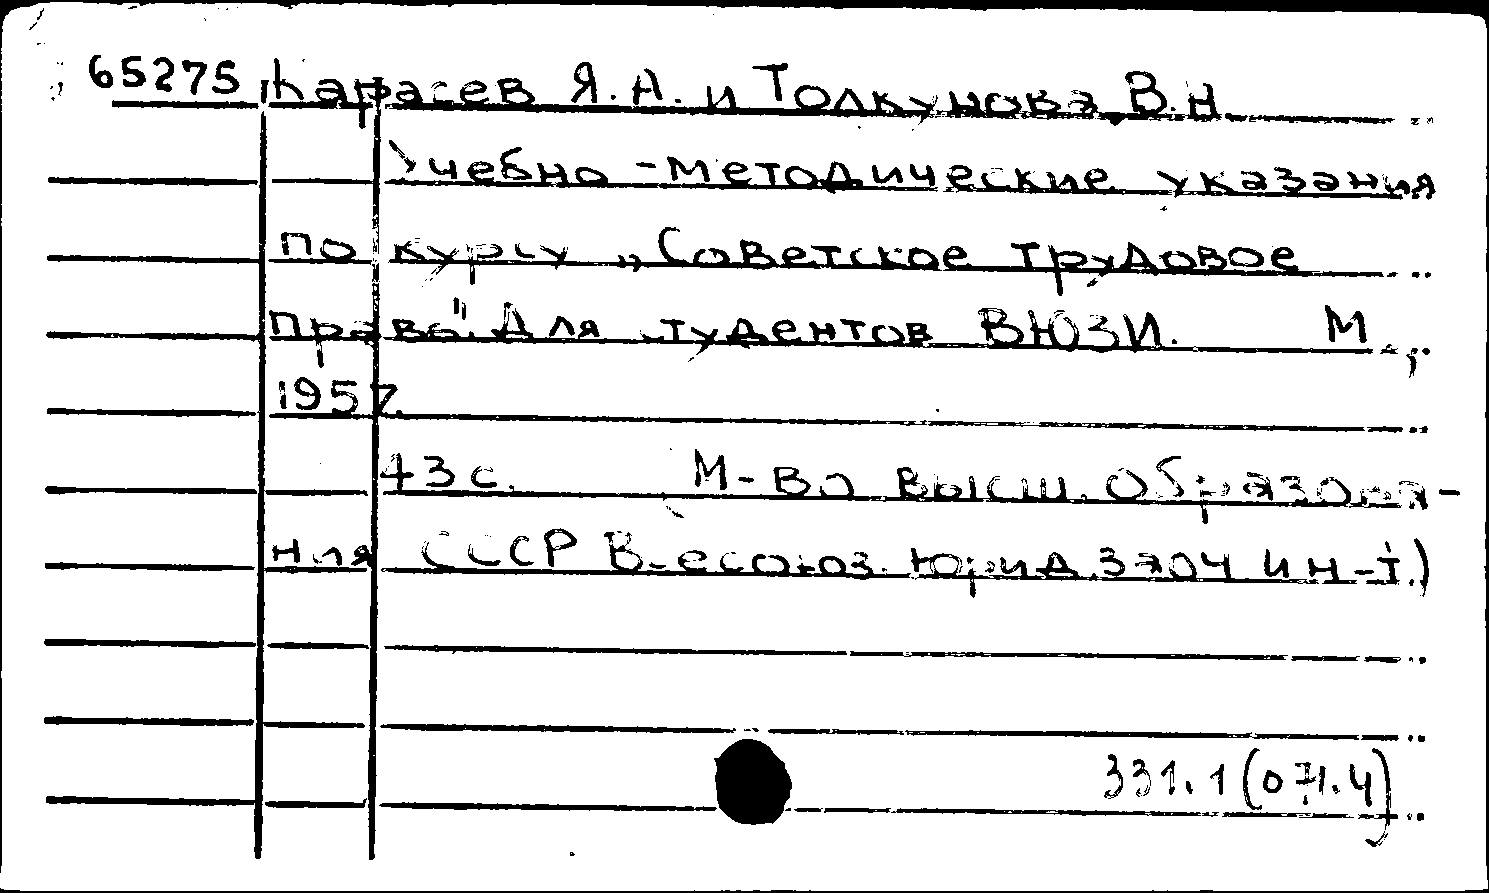 65275 Карасев Я.А. и Толкунова В.Н
Учебно-методические указания
по курсу „Советское трудовое
право" для студентов ВЮЗИ. М.,
1957.
43 с. М-во высш. образова-
ния СССР Всесоюз. юрид. заоч ин-т.)
331.1(071.4)